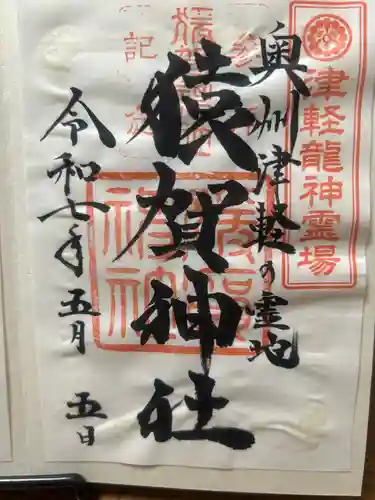 津軽龍神霊場
奥州津軽の霊地
参拝
記念
猿賀神社
猿賀神社
令和七年五月五日